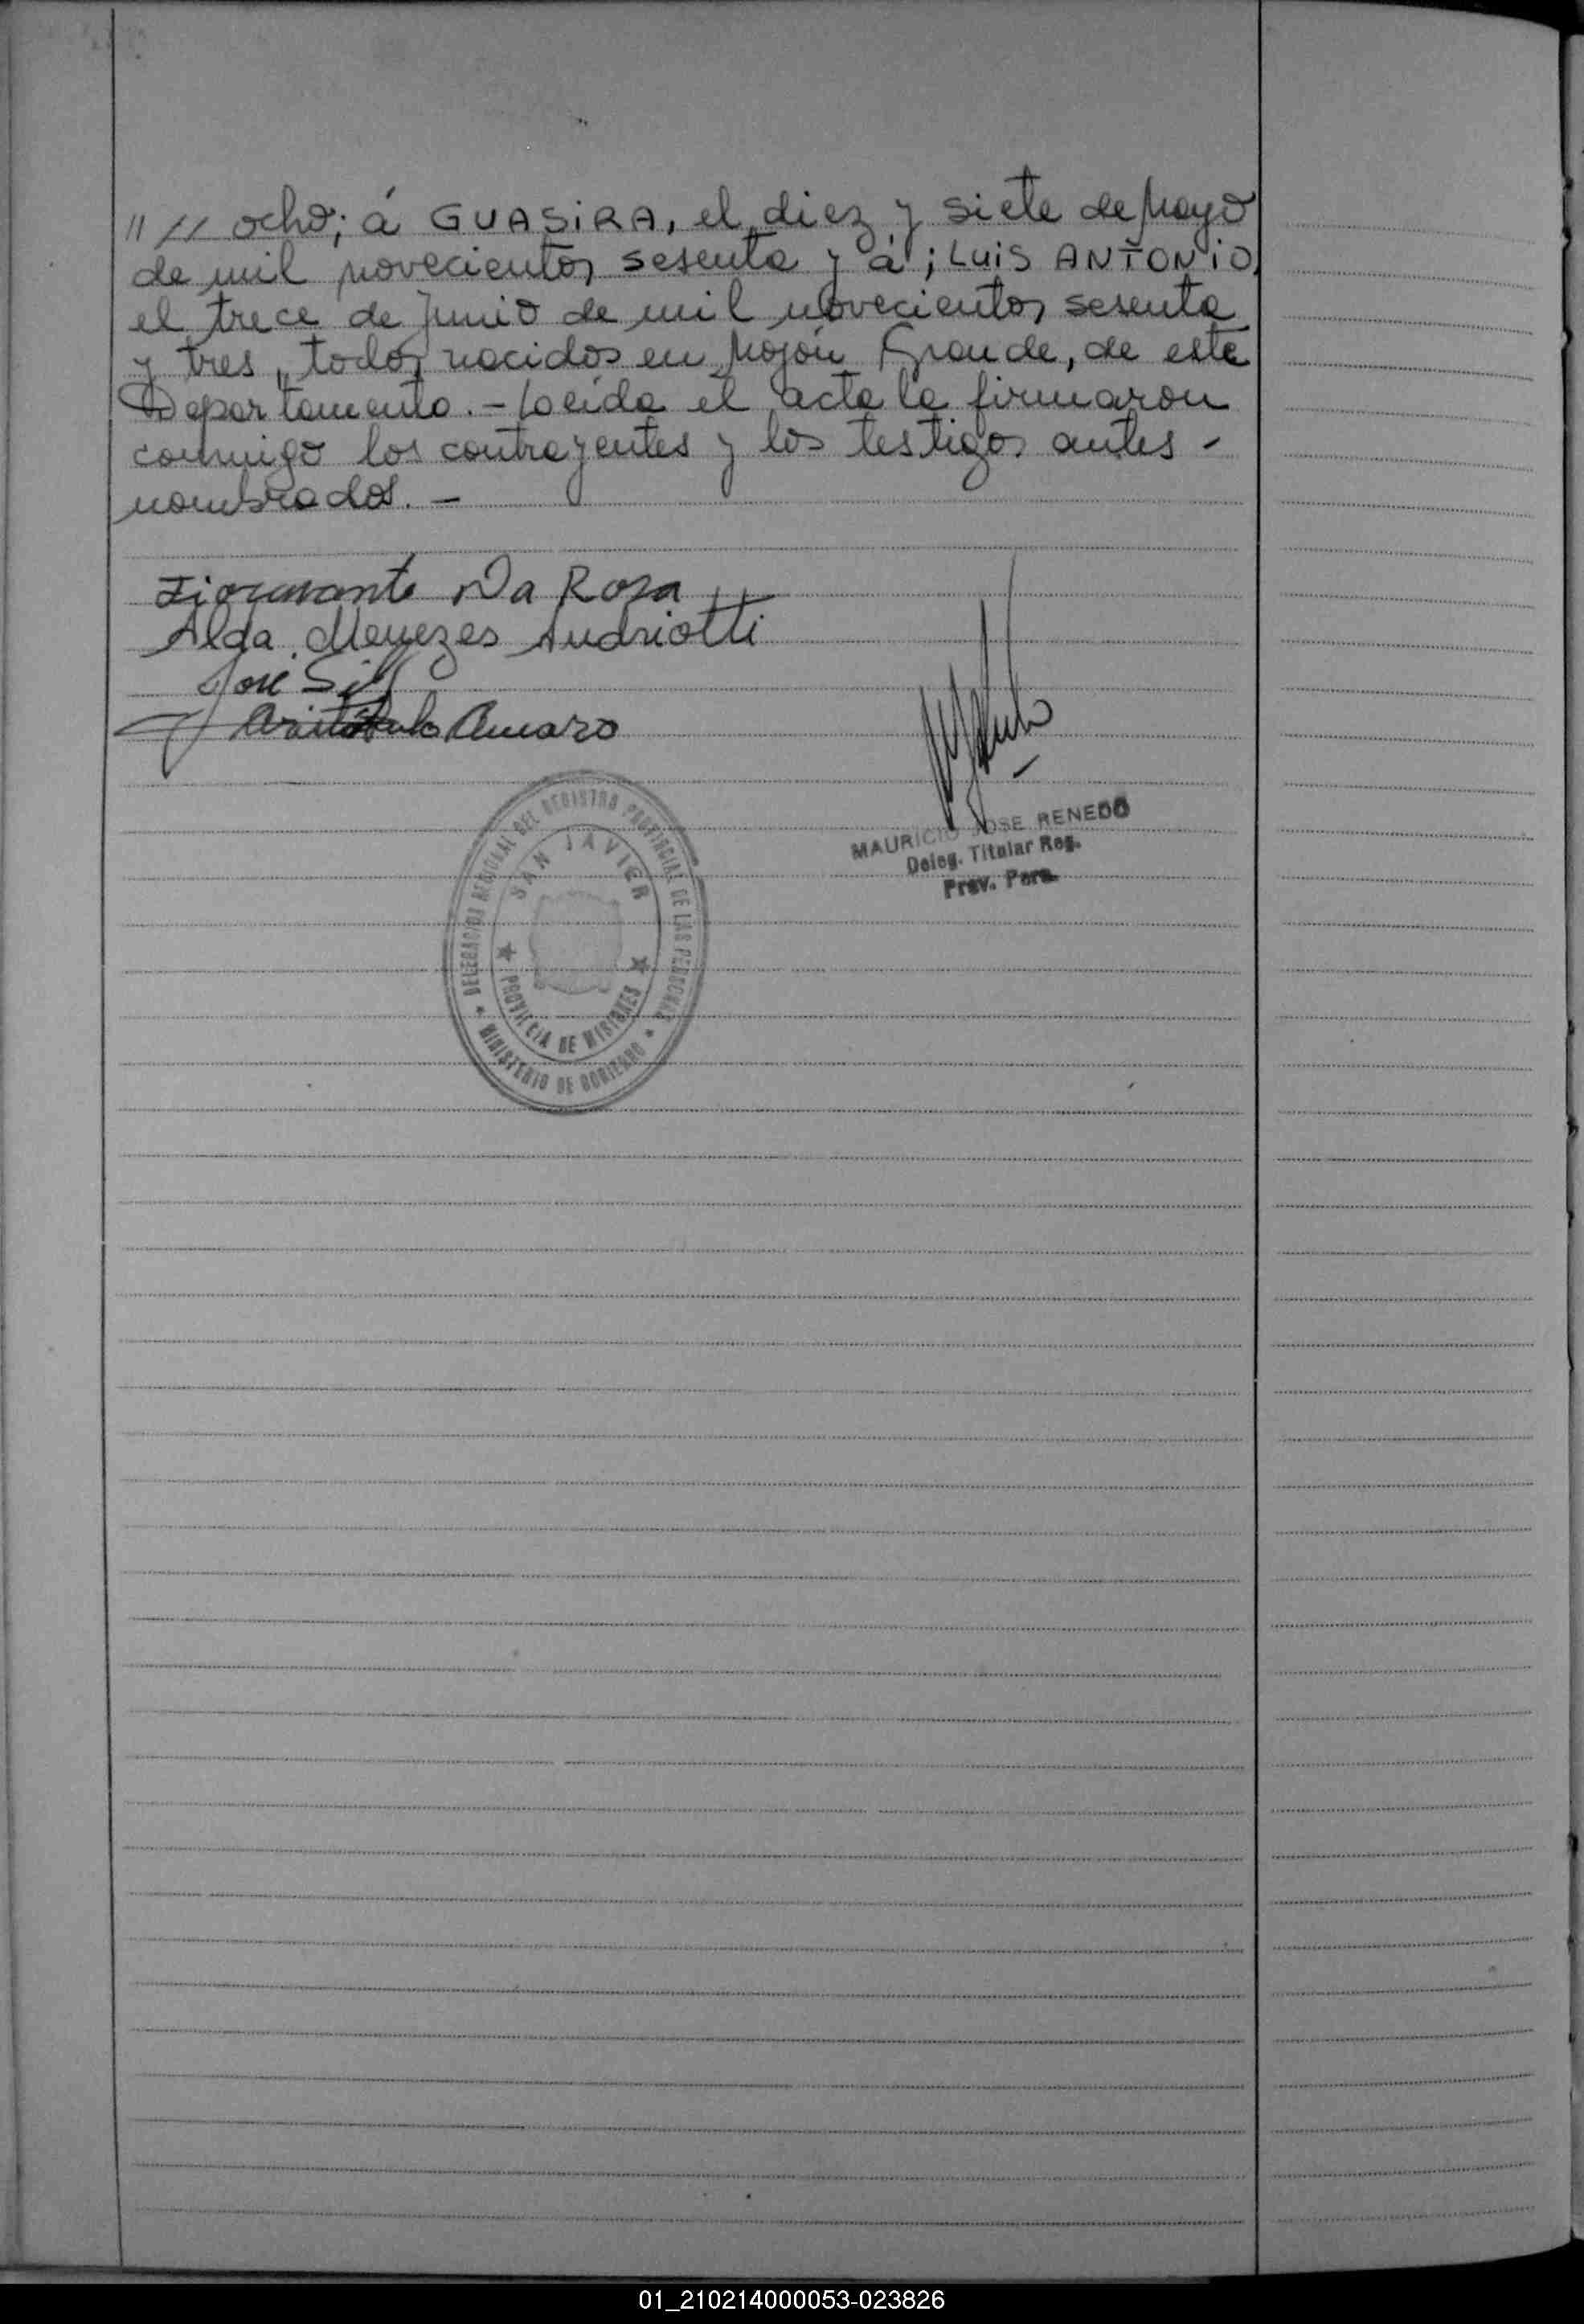 " // ocho; á GUASiRA, el diez y siete de Mayo
de mil novecientos sesenta y á ; LUiS ANTONiO,
el trece de Junio de mil novecientos sesenta
y tres, todos nacidos en Mojón Grande, de este
Departamento. - Leída el acta la firmaron
conmigo los contrayentes y los testigos antes -
nombrados. -
Fioravante Da Rosa
Alda Menezes Andriotti
José Sil
Amaro
MAURICIO JOSE RENEDO
Deleg. Titular Reg.
Prov. Pers.
DELEGACION REGIONAL DEL REGISTRO PROVINCIAL DE LAS PERSONAS
SAN JAVIER
PROVINCIA DE MISIONES
MINISTERIO DE GOBIERNO
01_210214000053-023826